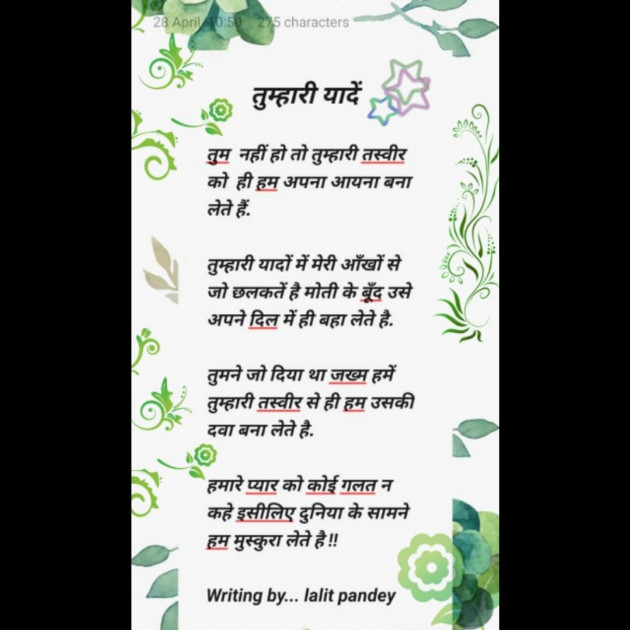 28 April 10:50 275 characters
तुम्हारी यादें
तुम नहीं हो तो तुम्हारी तस्वीर
को ही हम अपना आयना बना
लेते हैं.
तुम्हारी यादों में मेरी आँखों से
जो छलकतें है मोती के बूँद उसे
अपने दिल में ही बहा लेते है.
तुमने जो दिया था जख्म हमें
तुम्हारी तस्वीर से ही हम उसकी
दवा बना लेते है.
हमारे प्यार को कोई गलत न
कहे इसीलिए दुनिया के सामने
हम मुस्कुरा लेते है !!
Writing by... lalit pandey